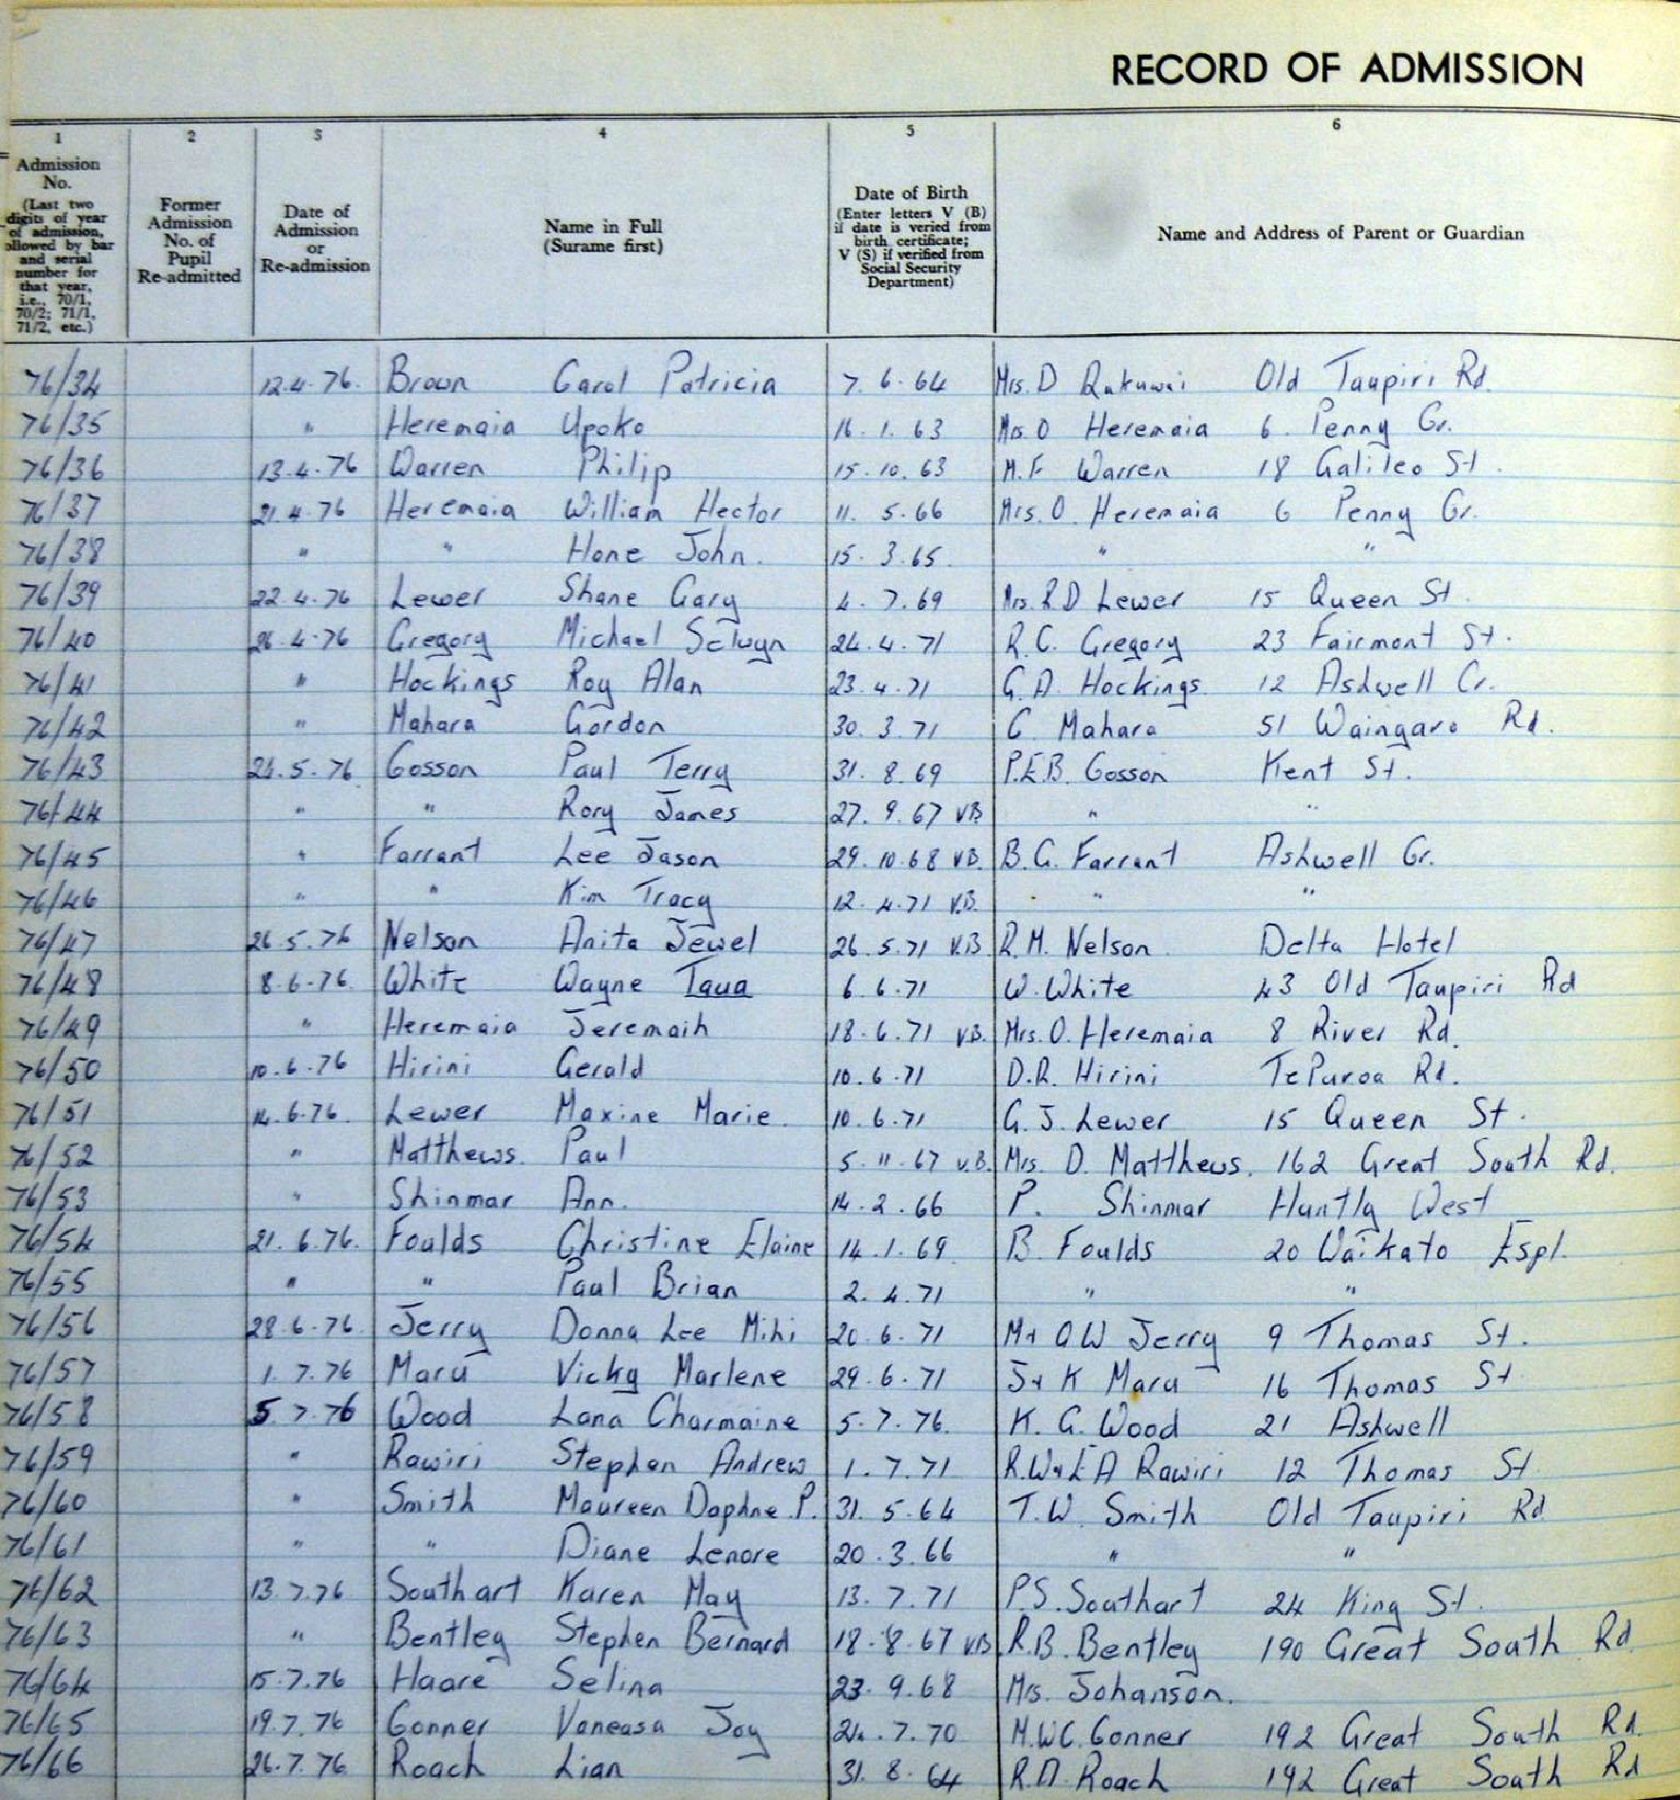 RECORD OF ADMISSION
1 2 3 4 5 6
Admission No. (Last two digits of year of admission, ollowed by bar and serial number for that year, i.e., 70/1, 70/2; 71/1, 71/2, etc.)
Former Admission No. of Pupil Re-admitted
Date of Admission or Re-admission
Name in Full (Surame first)
Date of Birth (Enter letters V (B) if date is veried from birth certificate; V (S) if verified from Social Security Department)
Name and Address of Parent or Guardian
76/34 12.4.76. Brown Carol Patricia 7.6.64 Mrs. D Old Taupiri Rd.
76/35 " Heremaia Upoko 16.1.63 Mrs. O Heremaia 6. Penny Cr.
76/36 13.4.76 Warren Philip 15.10.63 M.F Warren 18 Galileo St.
76/37 21.4.76 Heremaia William Hector 11.5.66 Mrs. O. Heremaia 6 Penny Cr.
76/38 " " Hone John. 15.3.65. " "
76/39 22.4.76 Lewer Shane Gary 4.7.69 Mrs. R D Lewer 15 Queen St.
76/40 26.4.76 Gregory Michael Selwyn 24.4.71 R.C. Gregory 23 Fairmont St.
76/41 " Hockings Roy Alan 23.4.71 G.A. Hockings. 12 Ashwell Cr.
76/42 " Mahara Gordon 30.3.71 G Mahara 51 Waingaro Rd.
76/43 24.5.76 Cosson Paul Terry 31.8.69 P.E.B. Cosson Kent St.
76/44 " " Rory James 27.9.67 VB " "
76/45 " Farrant Lee Jason 29.10.68 V.B. B.G. Farrant Ashwell Cr.
76/46 " " Kim Tracy 12.4.71 V.B. " "
76/47 26.5.76 Nelson Anita Jewel 26.5.71 V.B R.M. Nelson Delta Hotel
76/48 8.6.76. White Wayne Taua 6.6.71 W. White 43 Old Taupiri Rd
76/49 " Heremaia Jeremaih 18.6.71 V.B. Mrs. O. Heremaia 8 River Rd.
76/50 10.6.76 Hirini Gerald 10.6.71 D.R. Hirini Te Puroa Rd.
76/51 14.6.76. Lewer Maxine Marie. 10.6.71 G.J. Lewer 15 Queen St.
76/52 " Matthews. Paul 5.11.67 V.B. Mrs. D. Matthews. 162 Great South Rd.
76/53 " Shinmar Ann. 14.2.66 P. Shinmar Huntly West
76/54 21.6.76. Foulds Christine Elaine 14.1.69 B. Foulds 20 Waikato Espl.
76/55 " " Paul Brian 2.4.71 " "
76/56 28.6.76 Jerry Donna Lee Mihi 20.6.71 M + O W Jerry 9 Thomas St.
76/57 1.7.76 Maru Vicky Marlene 29.6.71 J + K Maru 16 Thomas St
76/58 5.7.76 Wood Lana Charmaine 5.7.76. K.G. Wood 21 Ashwell
76/59 " Rawiri Stephen Andrew 1.7.71 R.W + E A Rawiri 12 Thomas St.
76/60 " Smith Maureen Daphne P. 31.5.64 T.W. Smith Old Taupiri Rd
76/61 " " Diane Lenore 20.3.66 " "
76/62 13.7.76 Southart Karen May 13.7.71 P.S. Southart 24 King St.
76/63 " Bentley Stephen Bernard 18.8.67 V.B. R.B. Bentley 190 Great South Rd
76/64 15.7.76 Haare Selina 23.9.68 Mrs. Johanson.
76/65 19.7.76 Conner Vaneasa Joy 24.7.70 M.W.C. Conner 192 Great South Rd.
76/66 26.7.76 Roach Lian 31.8.64 R.A. Roach 192 Great South Rd